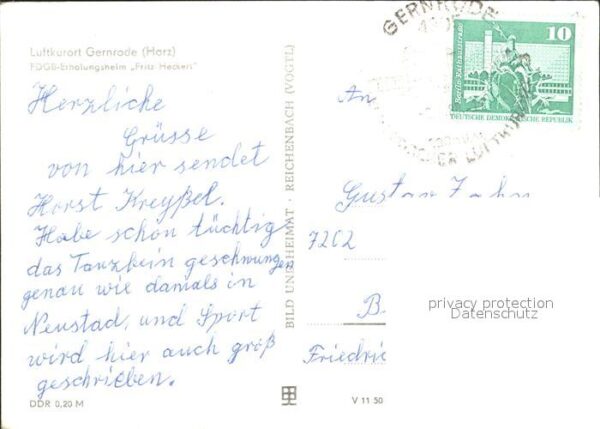 Luftkurort Gernrode (Harz)
FDGB-Erholungsheim „Fritz Heckert"
Herzliche
Grüsse
von hier sendet
Horst Kreyßel.
Habe schon tüchtig
das Tanzbein geschwungen
genau wie damals in
Neustad, und Sport
wird hier auch groß
geschrieben.
DDR 0,20 M
BILD UND HEIMAT · REICHENBACH (VOGTL)
V 11 50
GERNRODE
LUFTKURORT
10
Berlin-Rathausstraße
DEUTSCHE DEMOKRATISCHE REPUBLIK
An
Gustav Jahn
7262
B
Friedric
privacy protection
Datenschutz